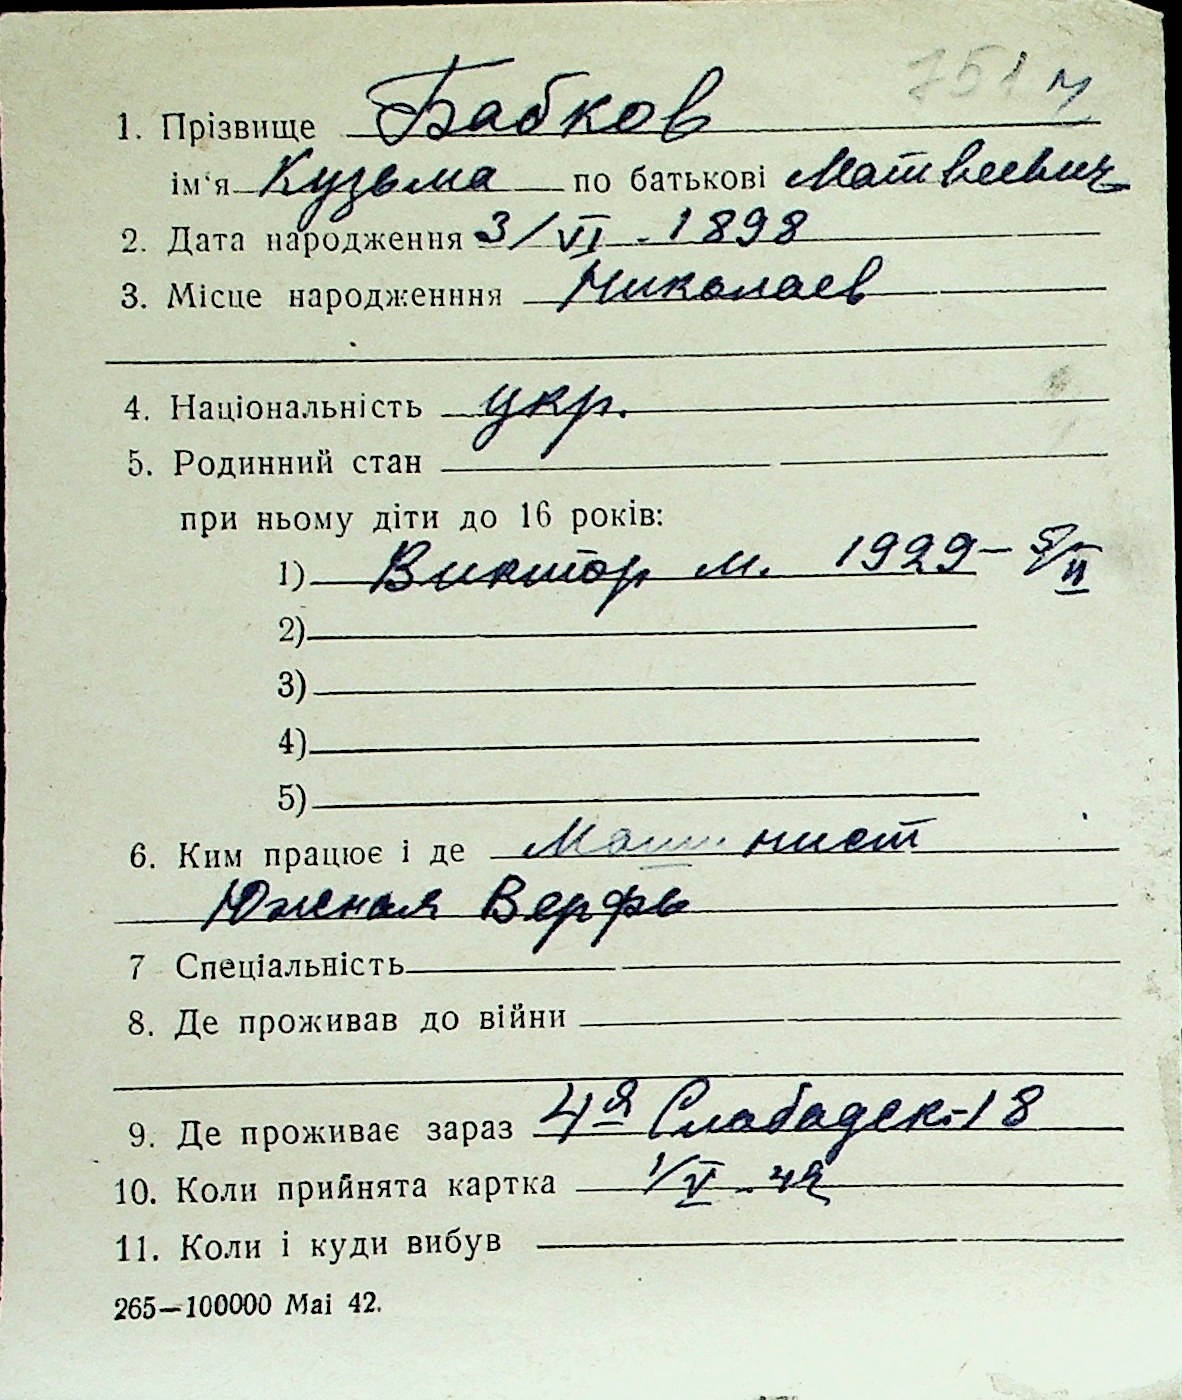 751 ч
1. Прізвище Бабков
ім'я Кузьма по батькові Матвеевич
2. Дата народження 3/VI - 1898
3. Місце народженння Николаев
4. Національність укр.
5. Родинний стан
при ньому діти до 16 років:
1) Виктор м. 1929 - 5/II
2)
3)
4)
5)
6. Ким працює і де Машинист
Южная Верфь
7 Спеціальність
8. Де проживав до війни
9. Де проживає зараз 4я Слабадск-18
10. Коли прийнята картка 1/V - 42
11. Коли і куди вибув
265—100000 Mai 42.